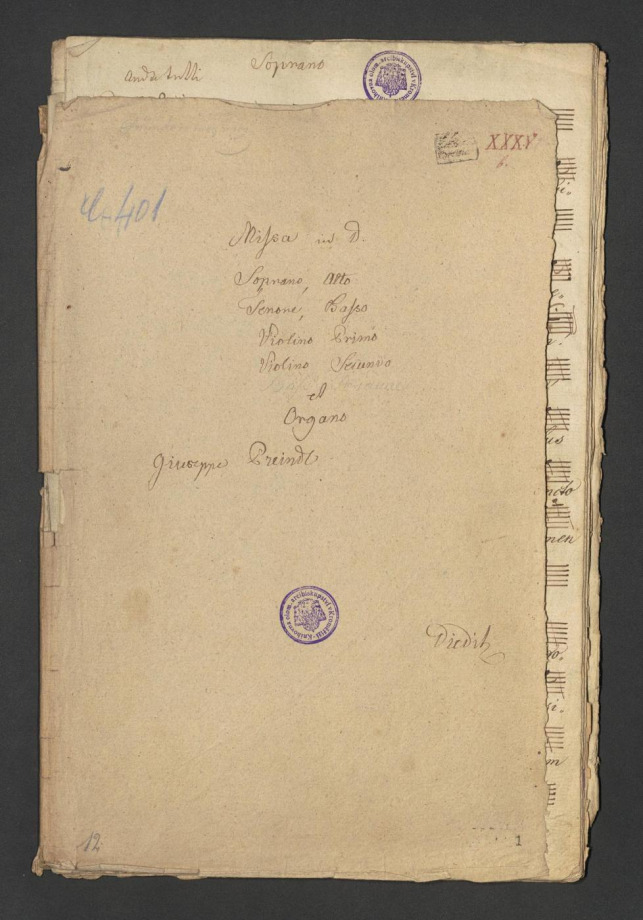 Soprano
And.te tutti
XXXV
6.
C-401
Missa in D.
Soprano, Alto
Tenore, Basso
Violino Primo
Violino Secundo
et
Organo
Giuseppe Preindl
Diedik
12
1